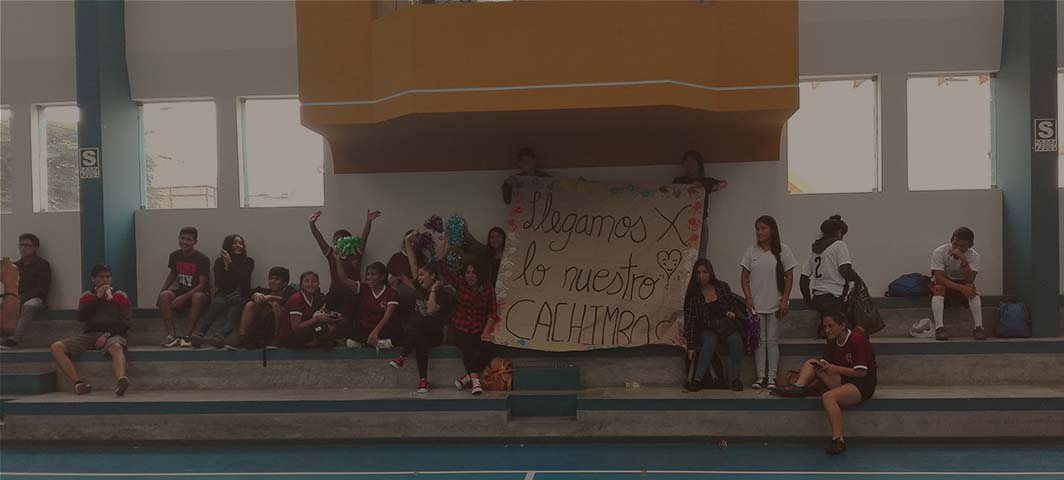 Llegamos X
lo nuestro
CACHIMBOS
S
S
2